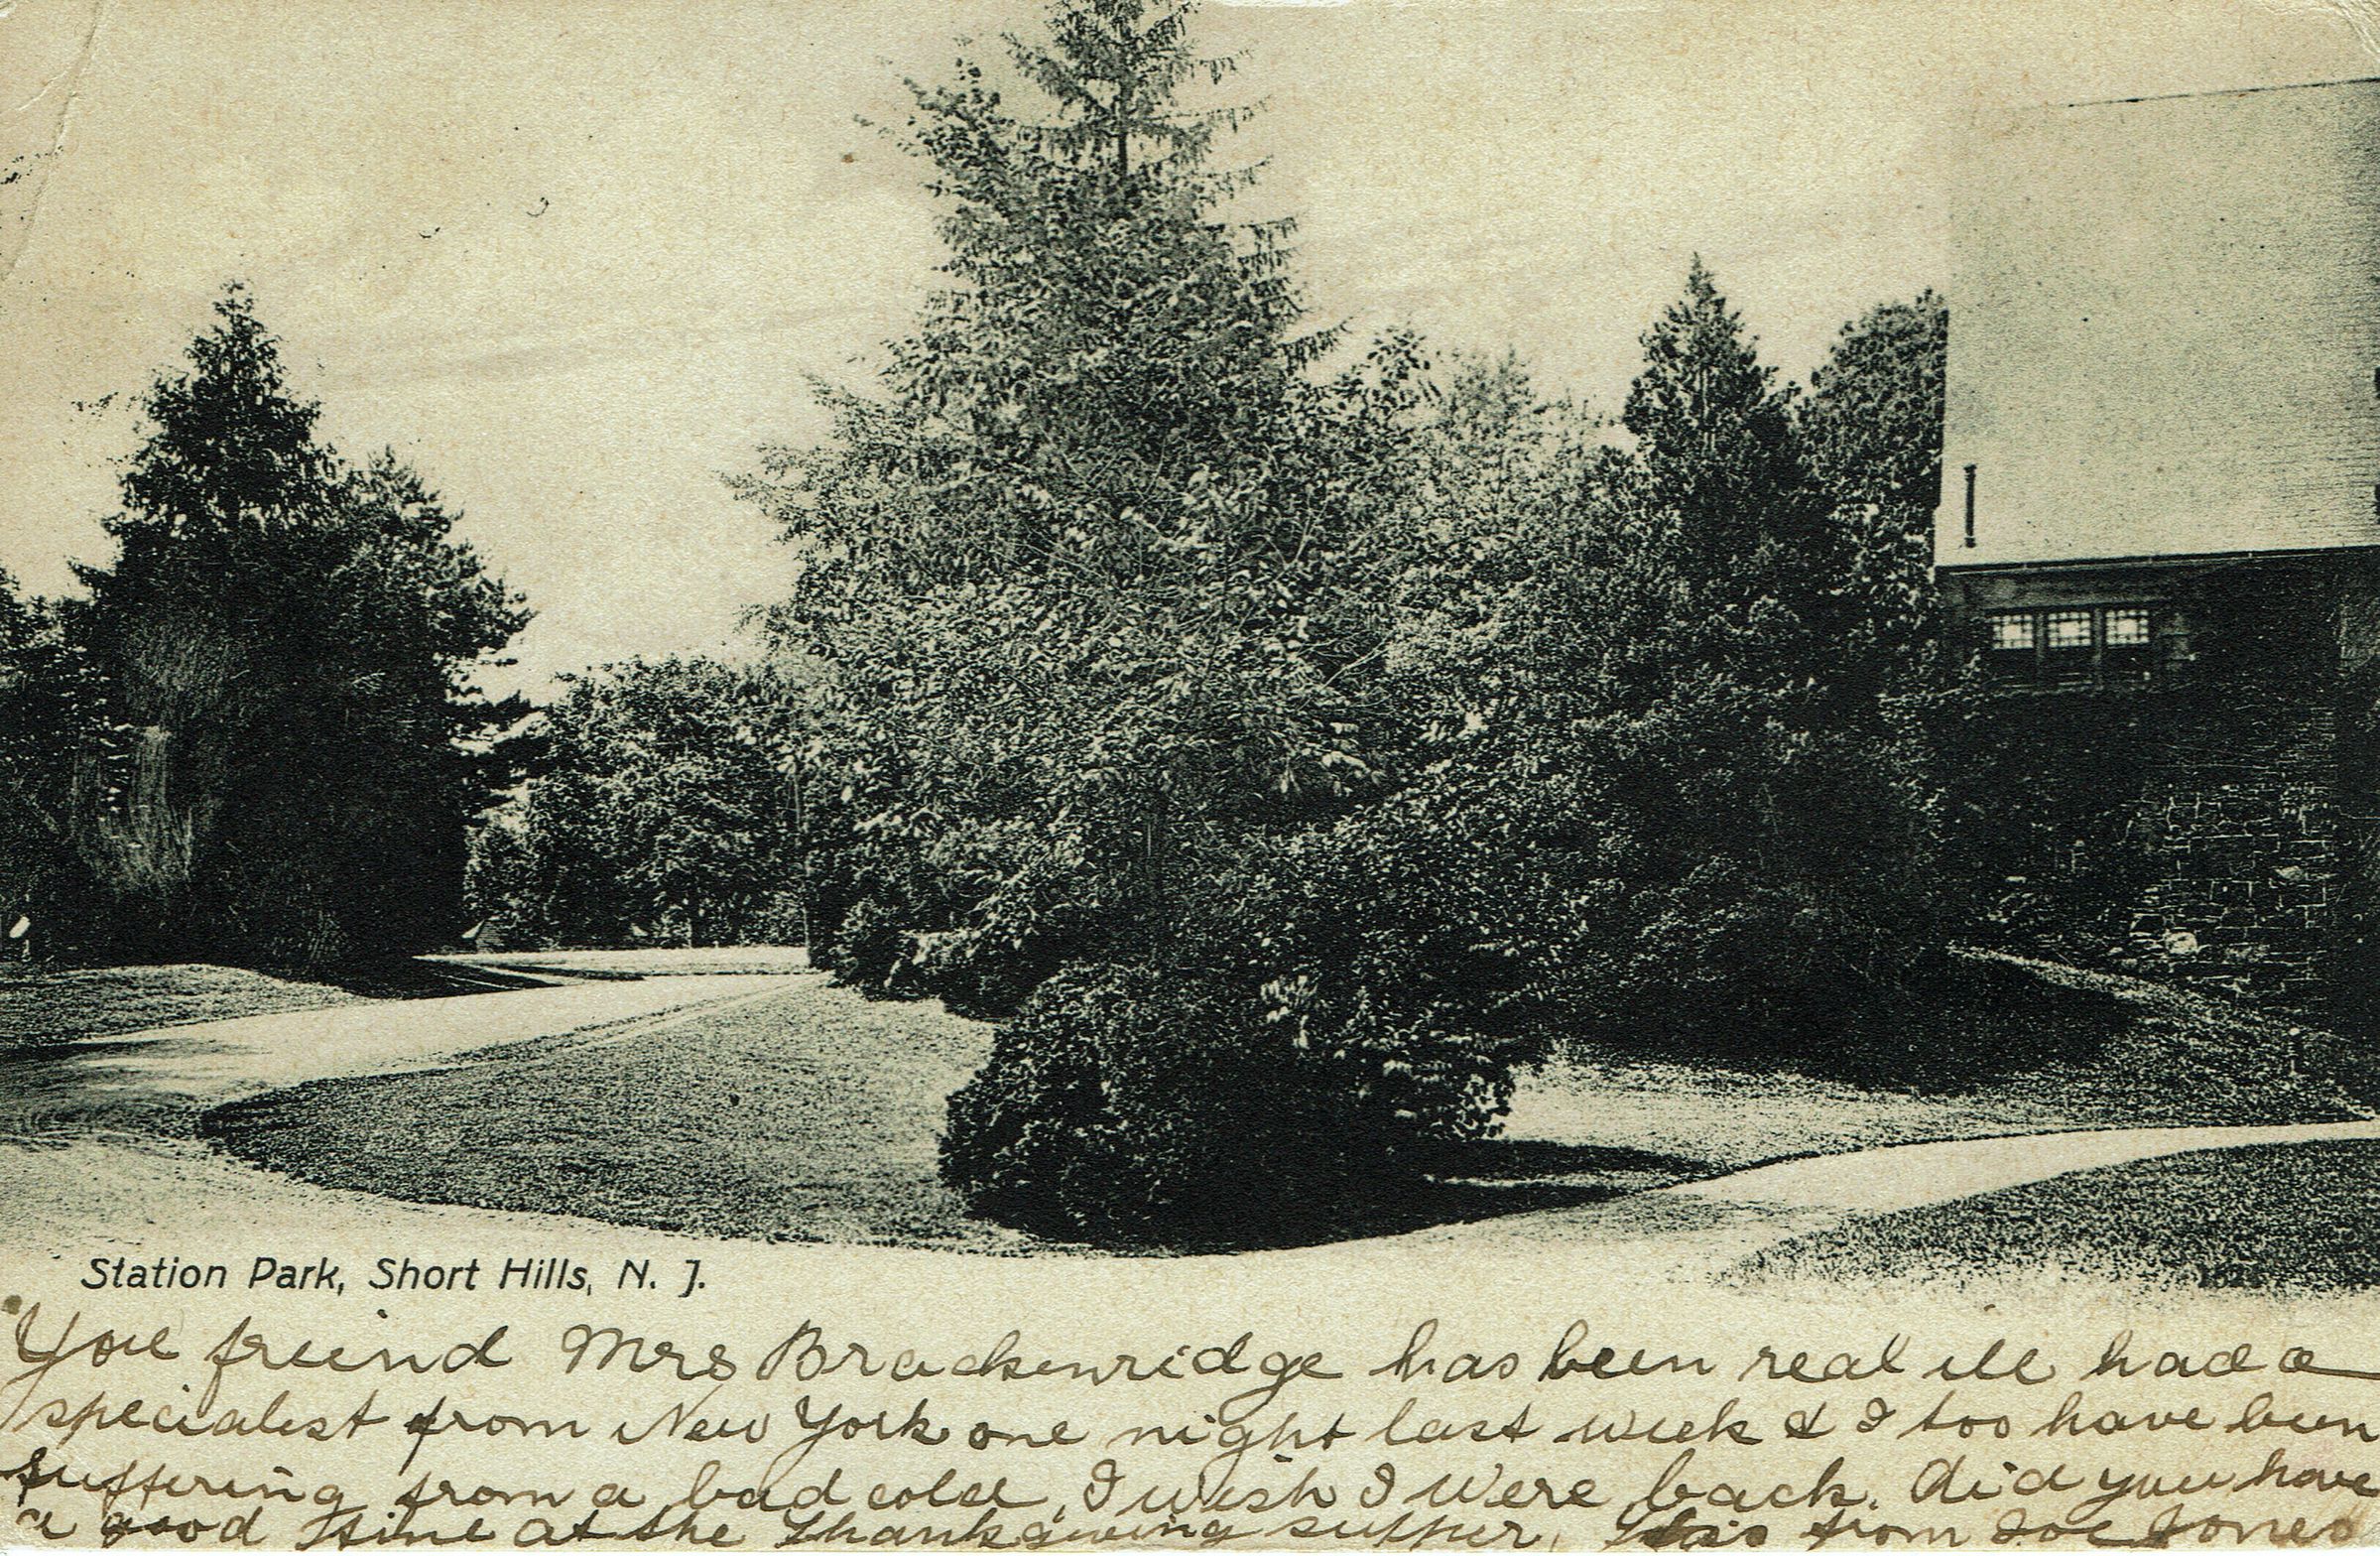 Station Park, Short Hills, N. J.
You freind Mrs Brackenridge has been real ill had a
specialist from New York one night last week & I too have been
suffering from a bad cold, I wish I were back. did you have
a good time at the Thanksgiving supper, from Joe Jones